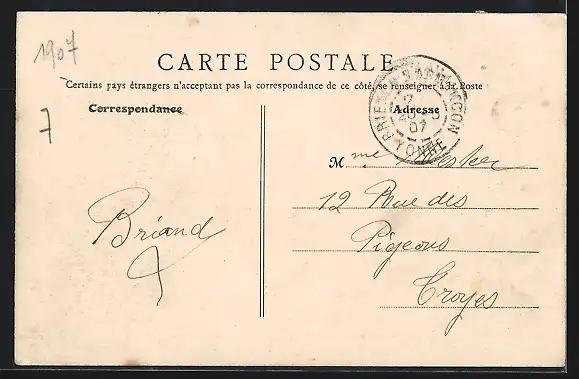 1907
7
CARTE POSTALE
Certains pays étrangers n'acceptant pas la correspondance de ce côté, se renseigner à la Poste
Correspondance
Adresse
BRIENON S ARMANÇON
7
20 - 3
07
YONNE
Mme
12 Rue des
Pigeons
Troyes
Briand